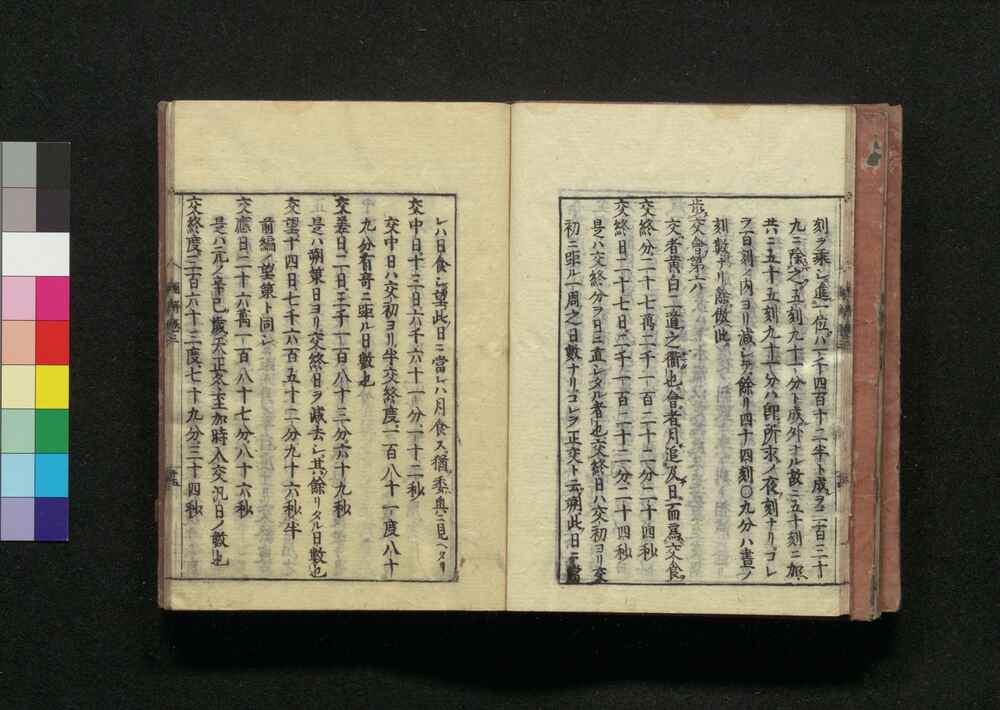 刻ヲ乗シ進一位バ一千四百十二半ト成ヲ二百三十
九ニ除之五刻九十一分ト成外ナル故ニ五十刻ニ加
共ニ五十五刻九十一分ハ即所求ノ夜刻ナリコレ
ヲ百刻ノ内ヨリ減シテ餘リ四十四刻〇九分ハ晝ノ
刻數ナリ餘倣此
歩交會第六
交者黄白二道之衢也會者月追及日而爲交食
交終分二十七萬二千一百二十二分二十四秒
交終日二十七日二千一百二十二分二十四秒
是ハ交終分ヲ日ニ直シタル者也交終日ハ交初ヨリ交
初ニ距ル一周之日數ナリコレヲ正交ト云朔此日ニ當
レハ日食シ望此日ニ當レハ月食ス猶委奥ニ見ヘタリ
交中日十三日六千六十一分一十二秒
交中日ハ交初ヨリ半交終度一百八十一度八十
九分有奇ニ距ル日數也
交差日二日三千一百八十三分六十九秒
是ハ朔策日ヨリ交終日ヲ減去シ其餘リタル日數也
交望十四日七千六百五十二分九十六秒半
前編ノ望策ト同シ
交應日二十六萬一百八十七分八十六秒
是ハ元ノ辛巳歳天正冬至加時入交汎日ノ數也
交終度三百六十三度七十九分三十四秒